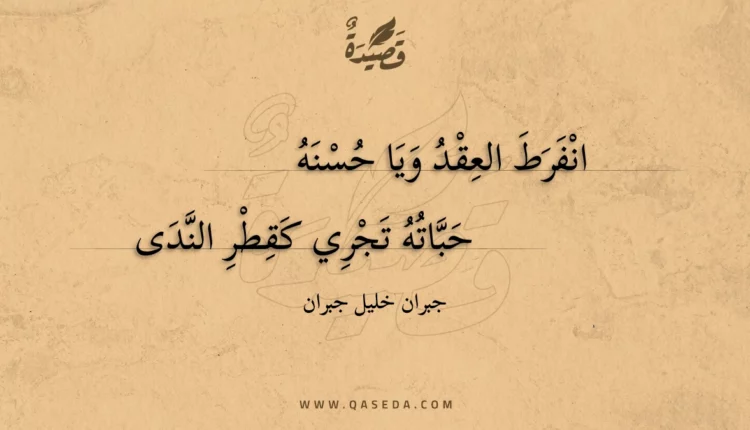 قَصِيْدَةٌ
انْفَرَطَ العِقْدُ وَيَا حُسْنَهُ
حَبَّاتُهُ تَجْرِي كَقِطْرِ النَّدَى
جبران خليل جبران
WWW.QASEDA.COM